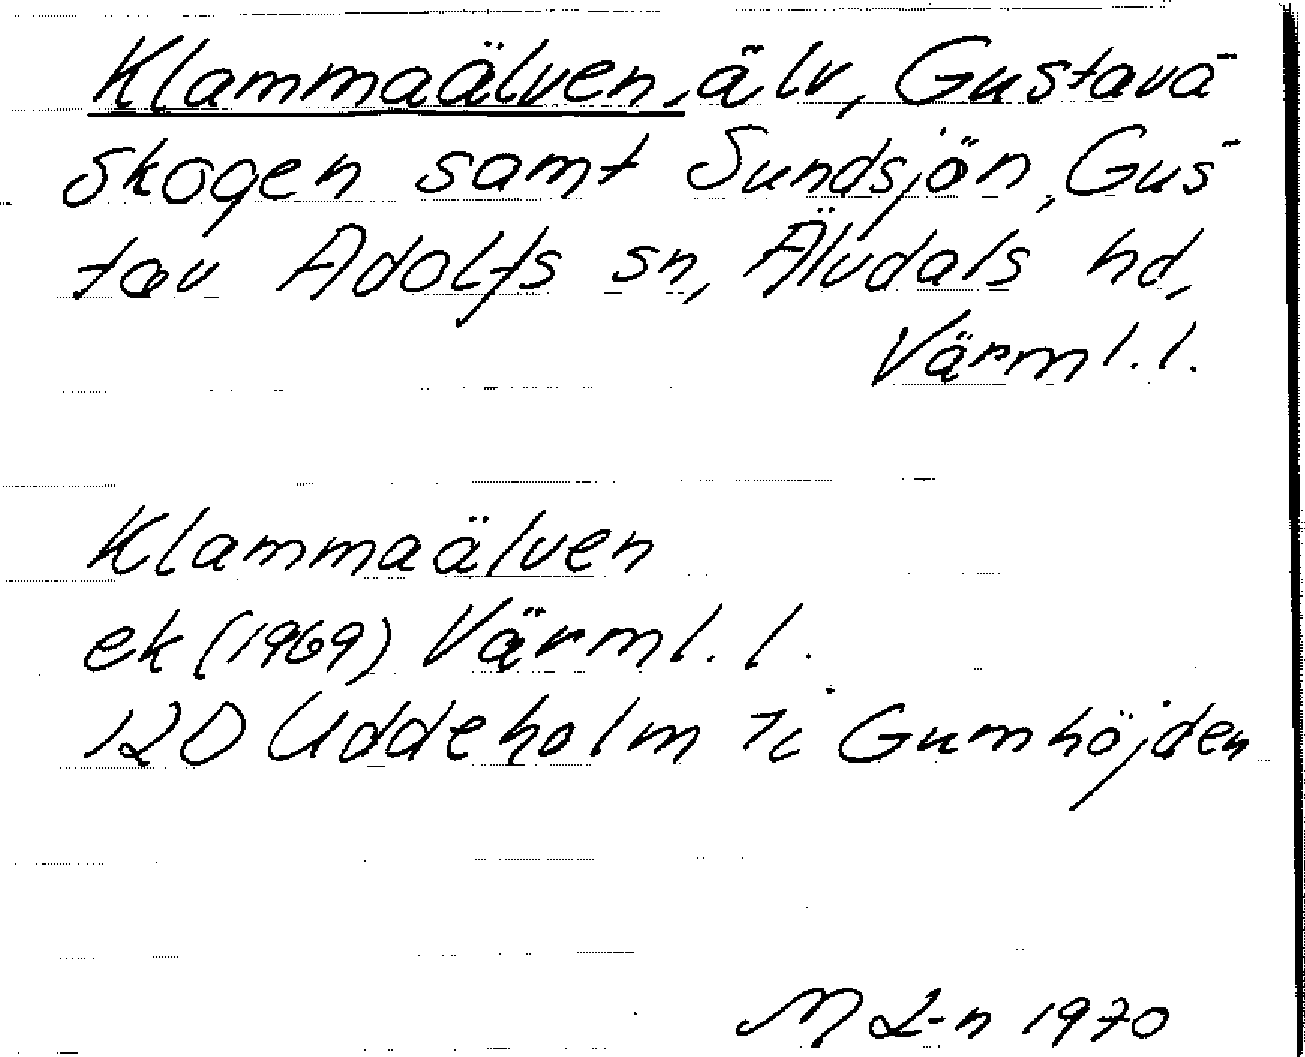 Klammaälven, älv, Gustava-
skogen samt Sundsjön, Gus-
tav Adolfs sn, Älvdals hd,
Värml. l.
Klammaälven
ek (1969) Värml. l.
12D Uddeholm 7c Gumhöjden
M L-n 1970